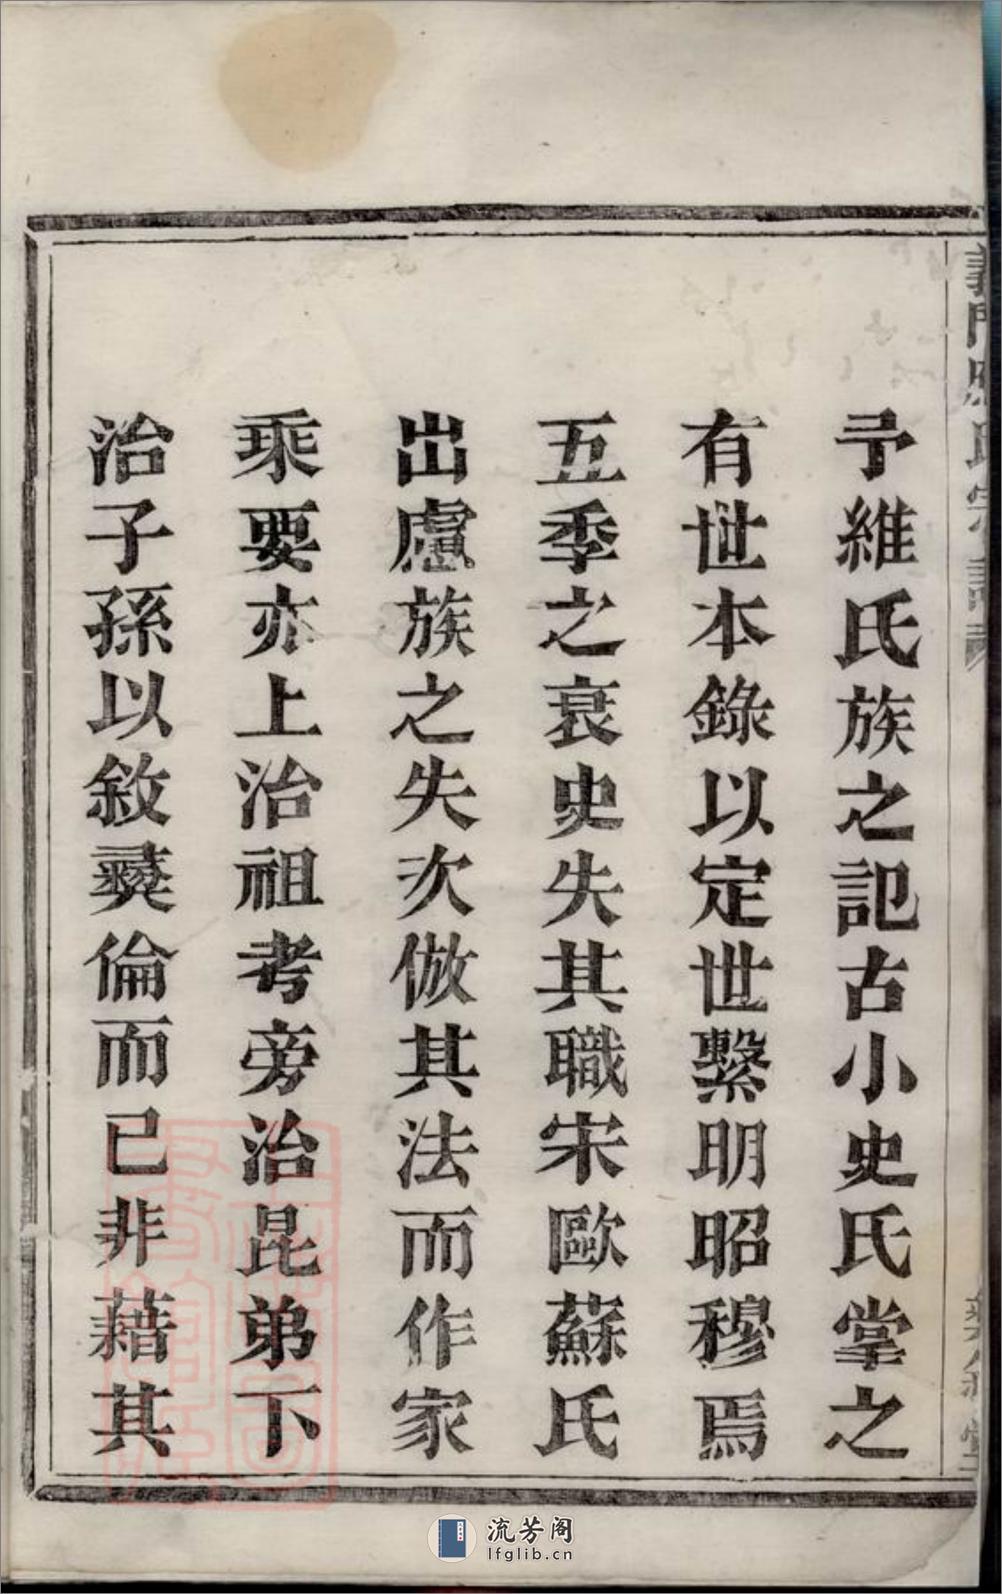 予維氏族之記古小史氏掌之
有世本錄以定世繫明昭穆焉
五季之衰史失其職宋歐蘇氏
出慮族之失次倣其法而作家
乘要亦上治祖考旁治昆弟下
治子孫以敘彝倫而已非藉其
流芳阁
lfglib.cn